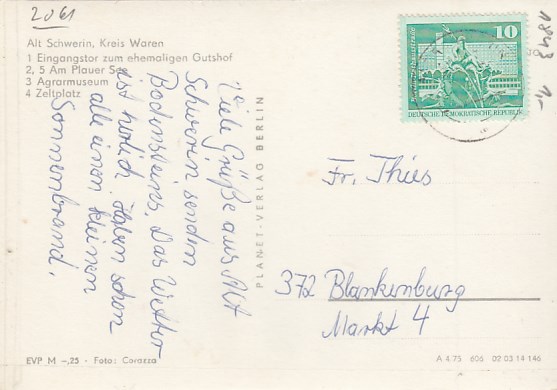 2061
Alt Schwerin, Kreis Waren
1 Eingangstor zum ehemaligen Gutshof
2, 5 Am Plauer See
3 Agrarmuseum
4 Zeltplatz
Viele Grüße aus Alt
Schwerin senden
Bodensteins. Das Wetter
ist herlich. Haben schon
alle einen kleinen
Sonnenbrand.
PLANET-VERLAG BERLIN
10
DEUTSCHE DEMOKRATISCHE REPUBLIK
1843
1,-
Fr. Thies
372 Blankenburg
Markt 4
EVP M –,25 · Foto: Corazza
A 4 75 606 02 03 14 146